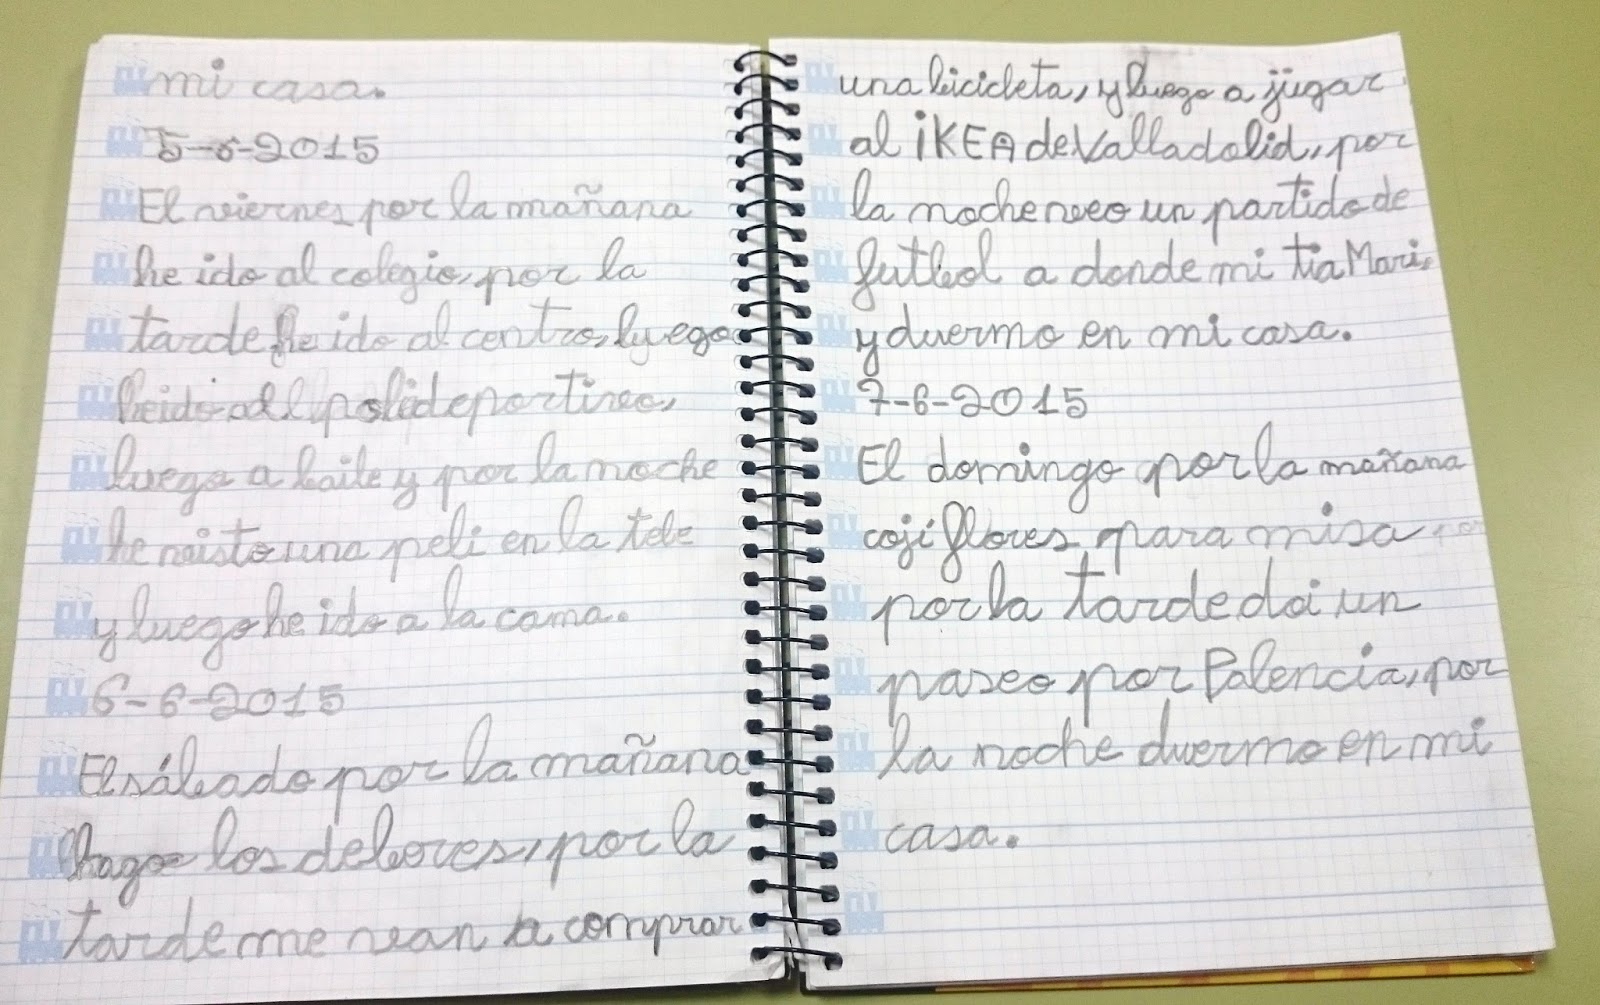 mi casa.
5-6-2015
El viernes por la mañana
he ido al colegio, por la
tarde he ido al centro, luego
he ido al polideportivo,
luego a baile y por la noche
he visto una peli en la tele
y luego he ido a la cama.
6-6-2015
El sábado por la mañana
hago los deberes, por la
tarde me vean a comprar
una bicicleta, y luego a jugar
al iKEA de Valladolid, por
la noche veo un partido de
futbol a donde mi tia Mari,
y duermo en mi casa.
7-6-2015
El domingo por la mañana
cojí flores para misa
por la tarde doi un
paseo por Palencia, por
la noche duermo en mi
casa.